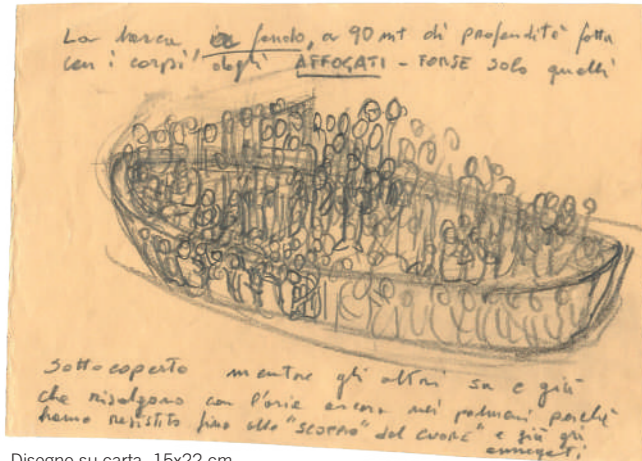 La barca in fondo, a 90 mt di profondità fatta
con i corpi degli AFFOGATI - FORSE solo quelli
Sottocoperta mentre gli altri su e giù
che risalgono con l'aria ancora nei polmoni perché
hanno resistito fino allo "SCOPPIO" del CUORE e già
annegati
Disegno su carta, 15x22 cm